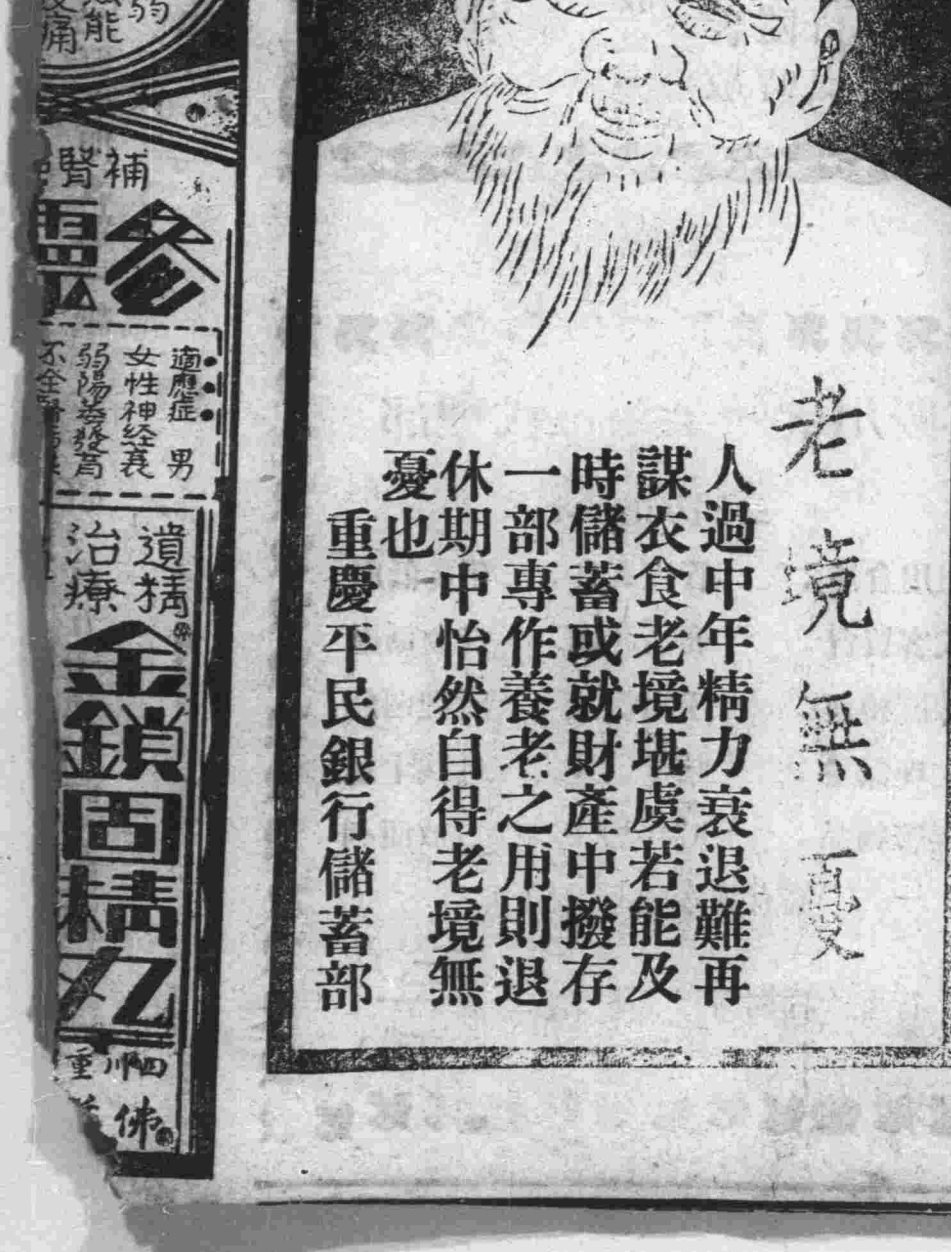 老境無憂
人過中年精力衰退難再
謀衣食老境堪虞若能及
時儲蓄或就財產中撥存
一部專作養老之用則退
休期中怡然自得老境無
憂也
重慶平民銀行儲蓄部
弱
能
痛
補腎
參靈
適應症 男
女性神経衰
弱陽萎發育
不全腎
遺精
治療
金鎖固精丸
四川重
佛